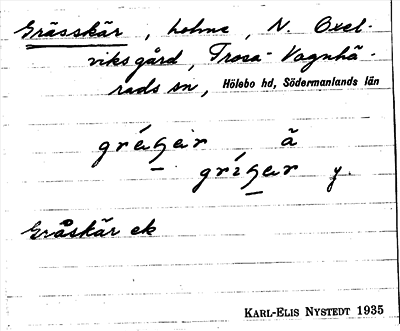 Grässkär, holme, N. Oxel-
viksgård, Trosa-Vagnhä-
rads sn, Hölebo hd, Södermanlands län
ä
y.
Gråskär ek
KARL-ELIS NYSTEDT 1935